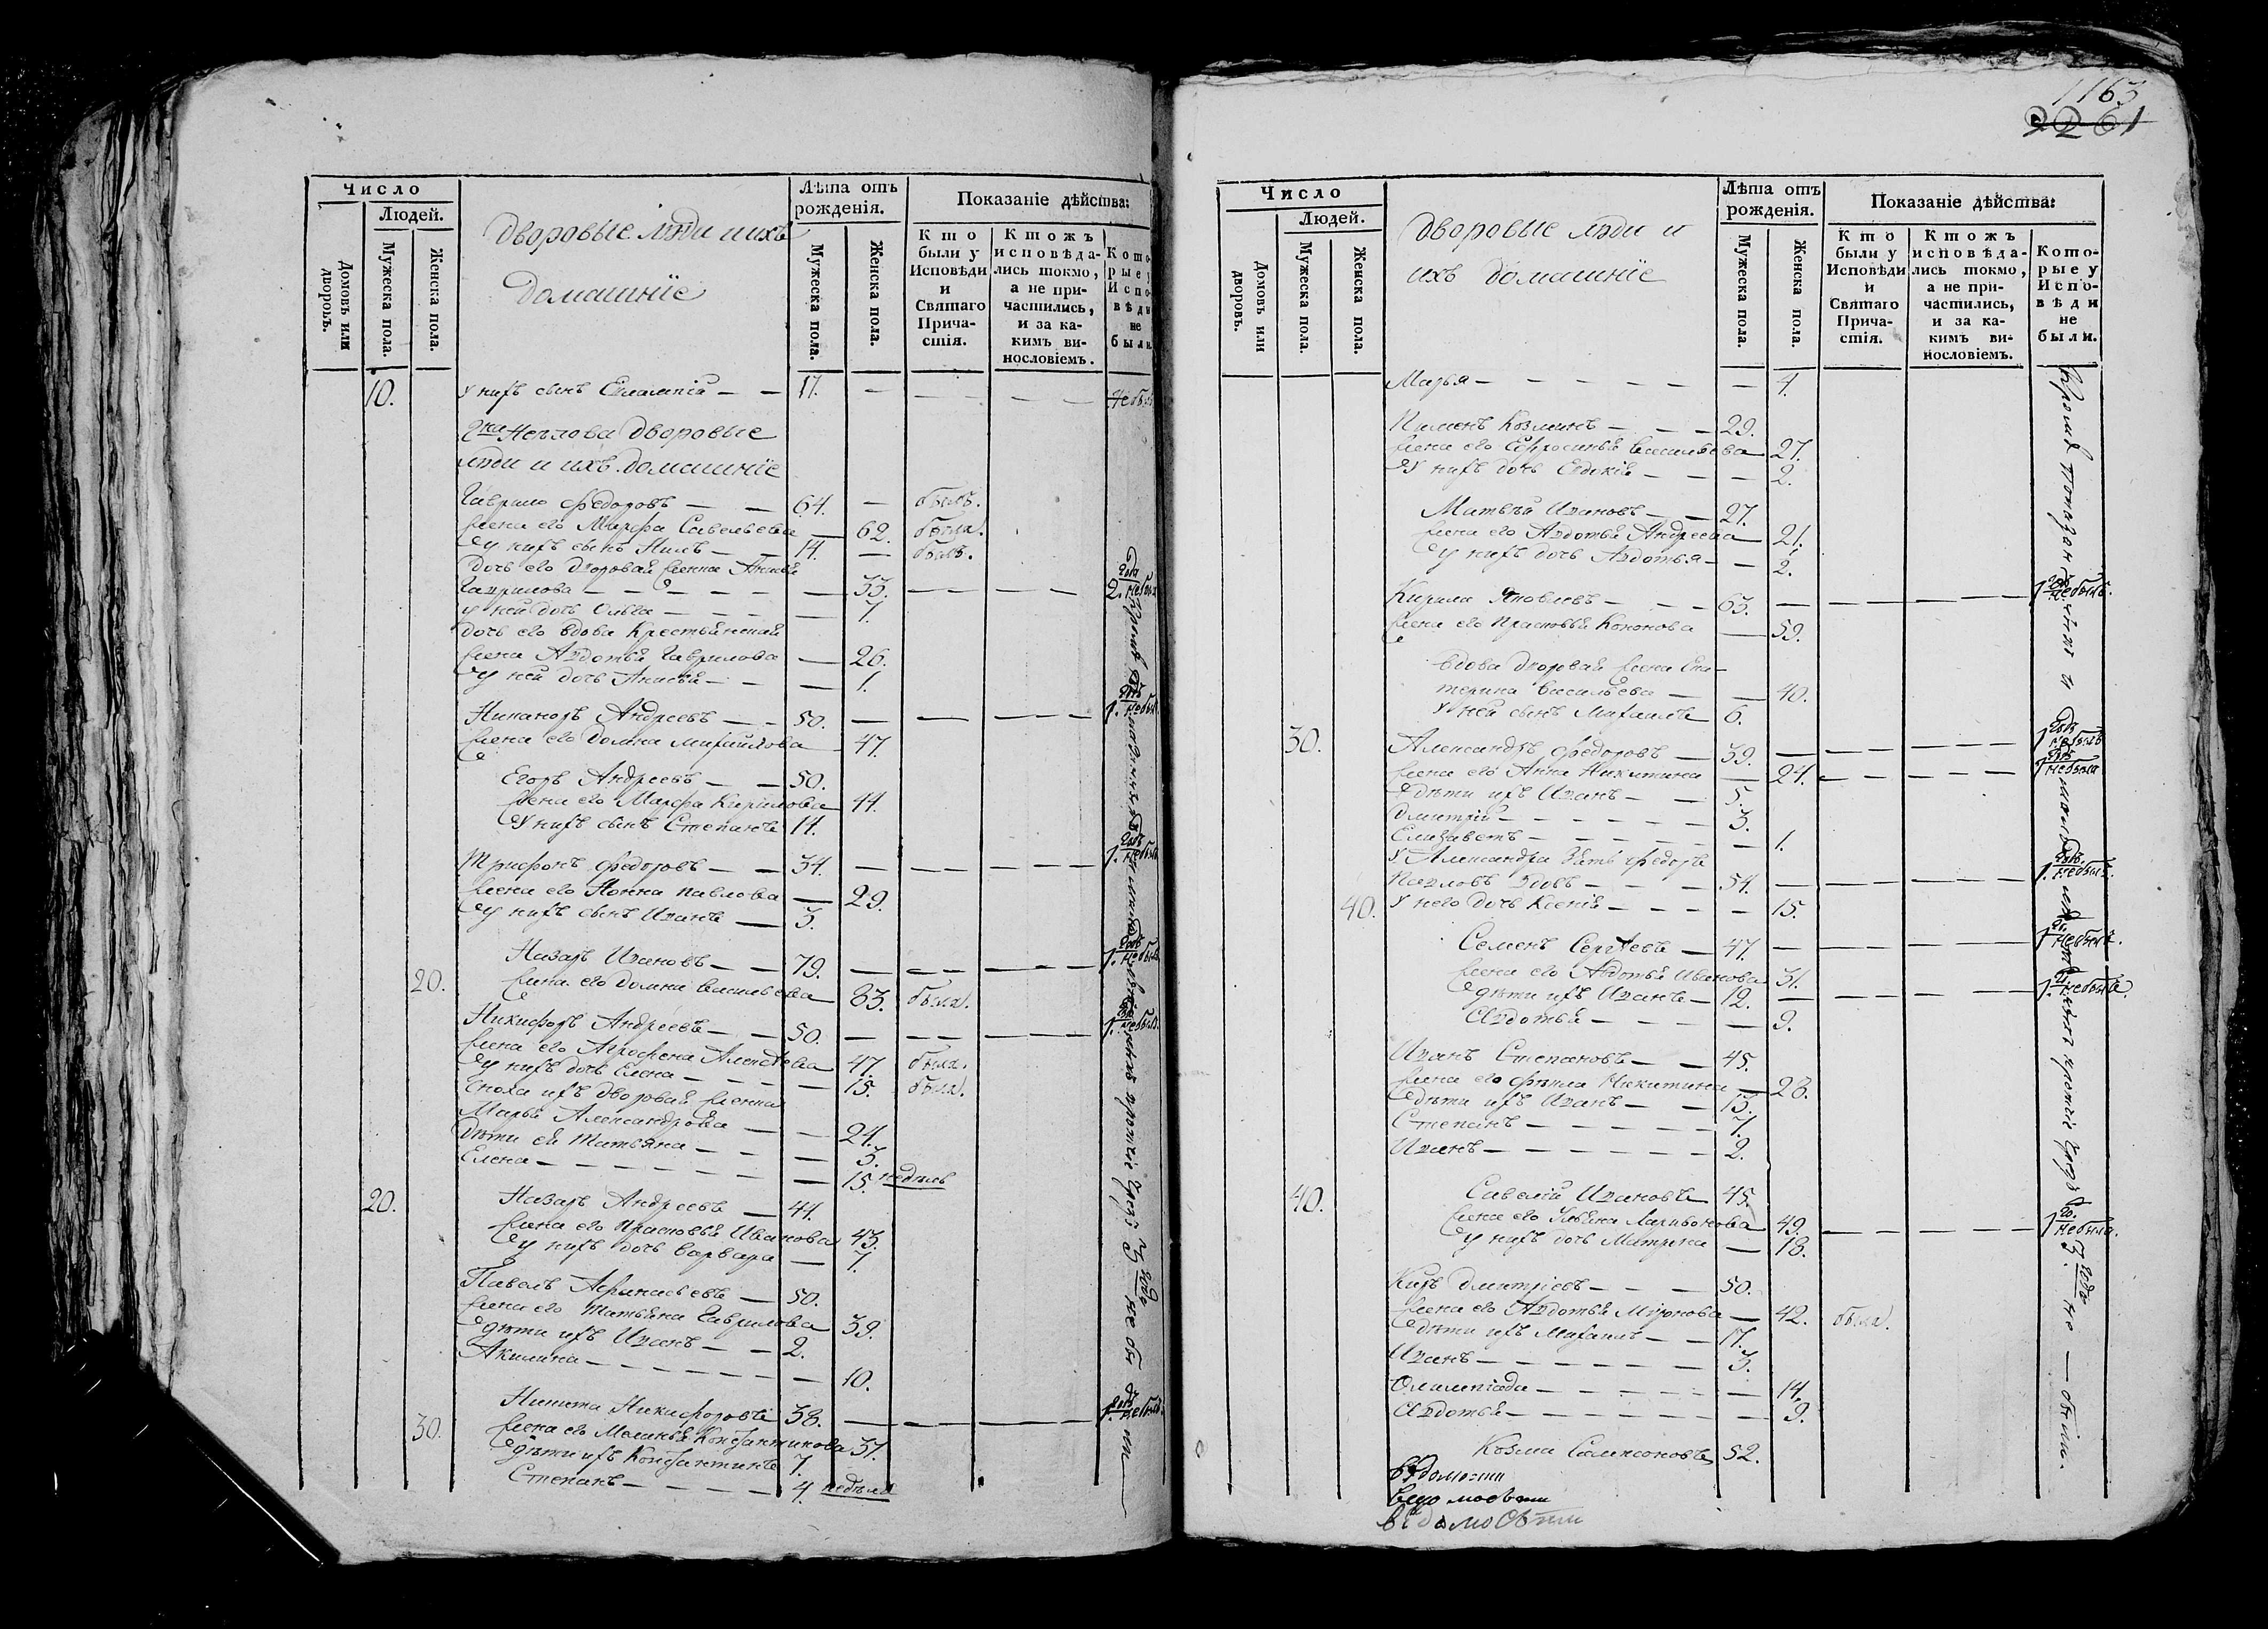 Число
Людей.
Домовъ или дворовъ.
Мужеска пола.
Женска пола.
Дворовые люди и ихъ
домашніе
Лѣта отъ рожденія.
Мужеска пола.
Женска пола.
Показаніе дѣйства:
Кто были у Исповѣди и Святаго Прича-стія.
Ктожъ исповѣда-лись токмо, а не при-частились, и за ка-кимъ ви-нословіемъ.
Кото-рые у Испо-вѣди не были.
10. у нихъ сынъ Евлампій — — 17. — — — — небылъ
Неелова дворовые
люди и ихъ домашніе
Гаврило Федоровъ — — 64. — былъ.
жена его Марфа Савельева — 62. была.
у нихъ сынъ Нилъ — — 14. — былъ.
дочь его дворовая женка
Гаврилова — — — — — 33. — — — 2. года небыла
у ней дочь Ольга — — — — 7.
дочь его вдова Крестьянская
жена Авдотья Гаврилова — 26.
у ней дочь Анисья — — — 1.
Никаноръ Андреевъ — — 50. — — — — 1. годъ небылъ.
жена его Домна Михайлова 47.
Егоръ Андреевъ — — 50.
жена его Марфа Кирилова 44.
у нихъ сынъ Степанъ 14.
Трифонъ Федоровъ — — 34. — — — — 1. годъ небылъ
жена его Нонна Павлова — 29.
у нихъ сынъ Иванъ — 3.
Назаръ Ивановъ — — 79. — — — — 1. годъ небылъ
20. жена его Домна Васильева 63. была.
Никифоръ Андреевъ — — 50. — — — — 1. годъ небылъ.
жена его Агрофена Алексѣева 47. была.
у нихъ дочь Елена — — — — 15. была.
сноха ихъ дворовая женка
Марья Александрова — — 24.
дѣти ей Татьяна — — — 3.
Елена — — — — — — — 15. недѣль
20. Назаръ Андреевъ — 44.
жена его Прасковья Иванова 43.
у нихъ дочь Варвара — 7.
Павелъ Афанасьевъ — 50.
жена его Татьяна Гаврилова 39.
дѣти ихъ Иванъ — — 2.
Акилина — — — — — — 10.
Никита Никифоровъ 38. — — — 1. годъ небылъ
30. жена его Меланья Константинова 31.
дѣти ихъ Константинъ 7.
Степанъ — — — — — 4. недѣли
1163
2261
Число
Людей.
Домовъ или дворовъ.
Мужеска пола.
Женска пола.
Дворовые люди и
ихъ домашніе
Лѣта отъ рожденія.
Мужеска пола.
Женска пола.
Показаніе дѣйства:
Кто были у Исповѣди и Святаго Прича-стія.
Ктожъ исповѣда-лись токмо, а не при-частились, и за ка-кимъ ви-нословіемъ.
Кото-рые у Испо-вѣди не были.
Марья — — — — — — 4.
Пименъ Козминъ — — — 29.
жена его Ефросинья Васильева 27.
у нихъ дочь Евдокія — — — 2.
Матвѣй Ивановъ — — 27.
жена его Авдотья Андреева — 21.
у нихъ дочь Авдотья — — 2.
Кирила Яковлевъ — — — 63. — — — — 1. годъ небылъ.
жена его Прасковья Кононова — 59.
вдова дворовая жена Ека-
терина Васильева — — 40.
у ней сынъ Михаилъ 6.
30. Александръ Федоровъ — 39. — — — — 1. годъ небылъ
жена его Анна Никитина — 24. — — — 1 годъ небыла
дѣти ихъ Иванъ — — 5.
Дмитрій — — — — — — 3.
Елизаветъ — — — — — — 1.
у Александра зять Федоръ
Павловъ вдовъ — — — 54. — — — — 1. годъ. небылъ.
40. у него дочь Ксенія — — — — 15.
Семенъ Сергѣевъ — 47. — — — — 1 небылъ.
жена его Авдотья Иванова 31.
дѣти ихъ Иванъ — 12. — — — — 1. небылъ.
Авдотья — — — — — 9.
Иванъ Степановъ — — 45.
жена его Фекла Никитина — 28.
дѣти ихъ Иванъ — — 13.
Степанъ — — — — — — 7.
Иванъ — — — — — — — 2.
40. Савелій Ивановъ — 45.
жена его Ульяна Ларионова 49. — — — 1. небыла.
у нихъ дочь Матрена — 18.
Киръ Дмитріевъ — — — 50.
жена его Авдотья Миронова — 42. была.
дѣти ихъ Михаилъ — — 17.
Иванъ — — — — — — — 3.
Олимпіада — — — — — — 14.
Авдотья — — — — — — — 9.
Козма Сампсоновъ 52.